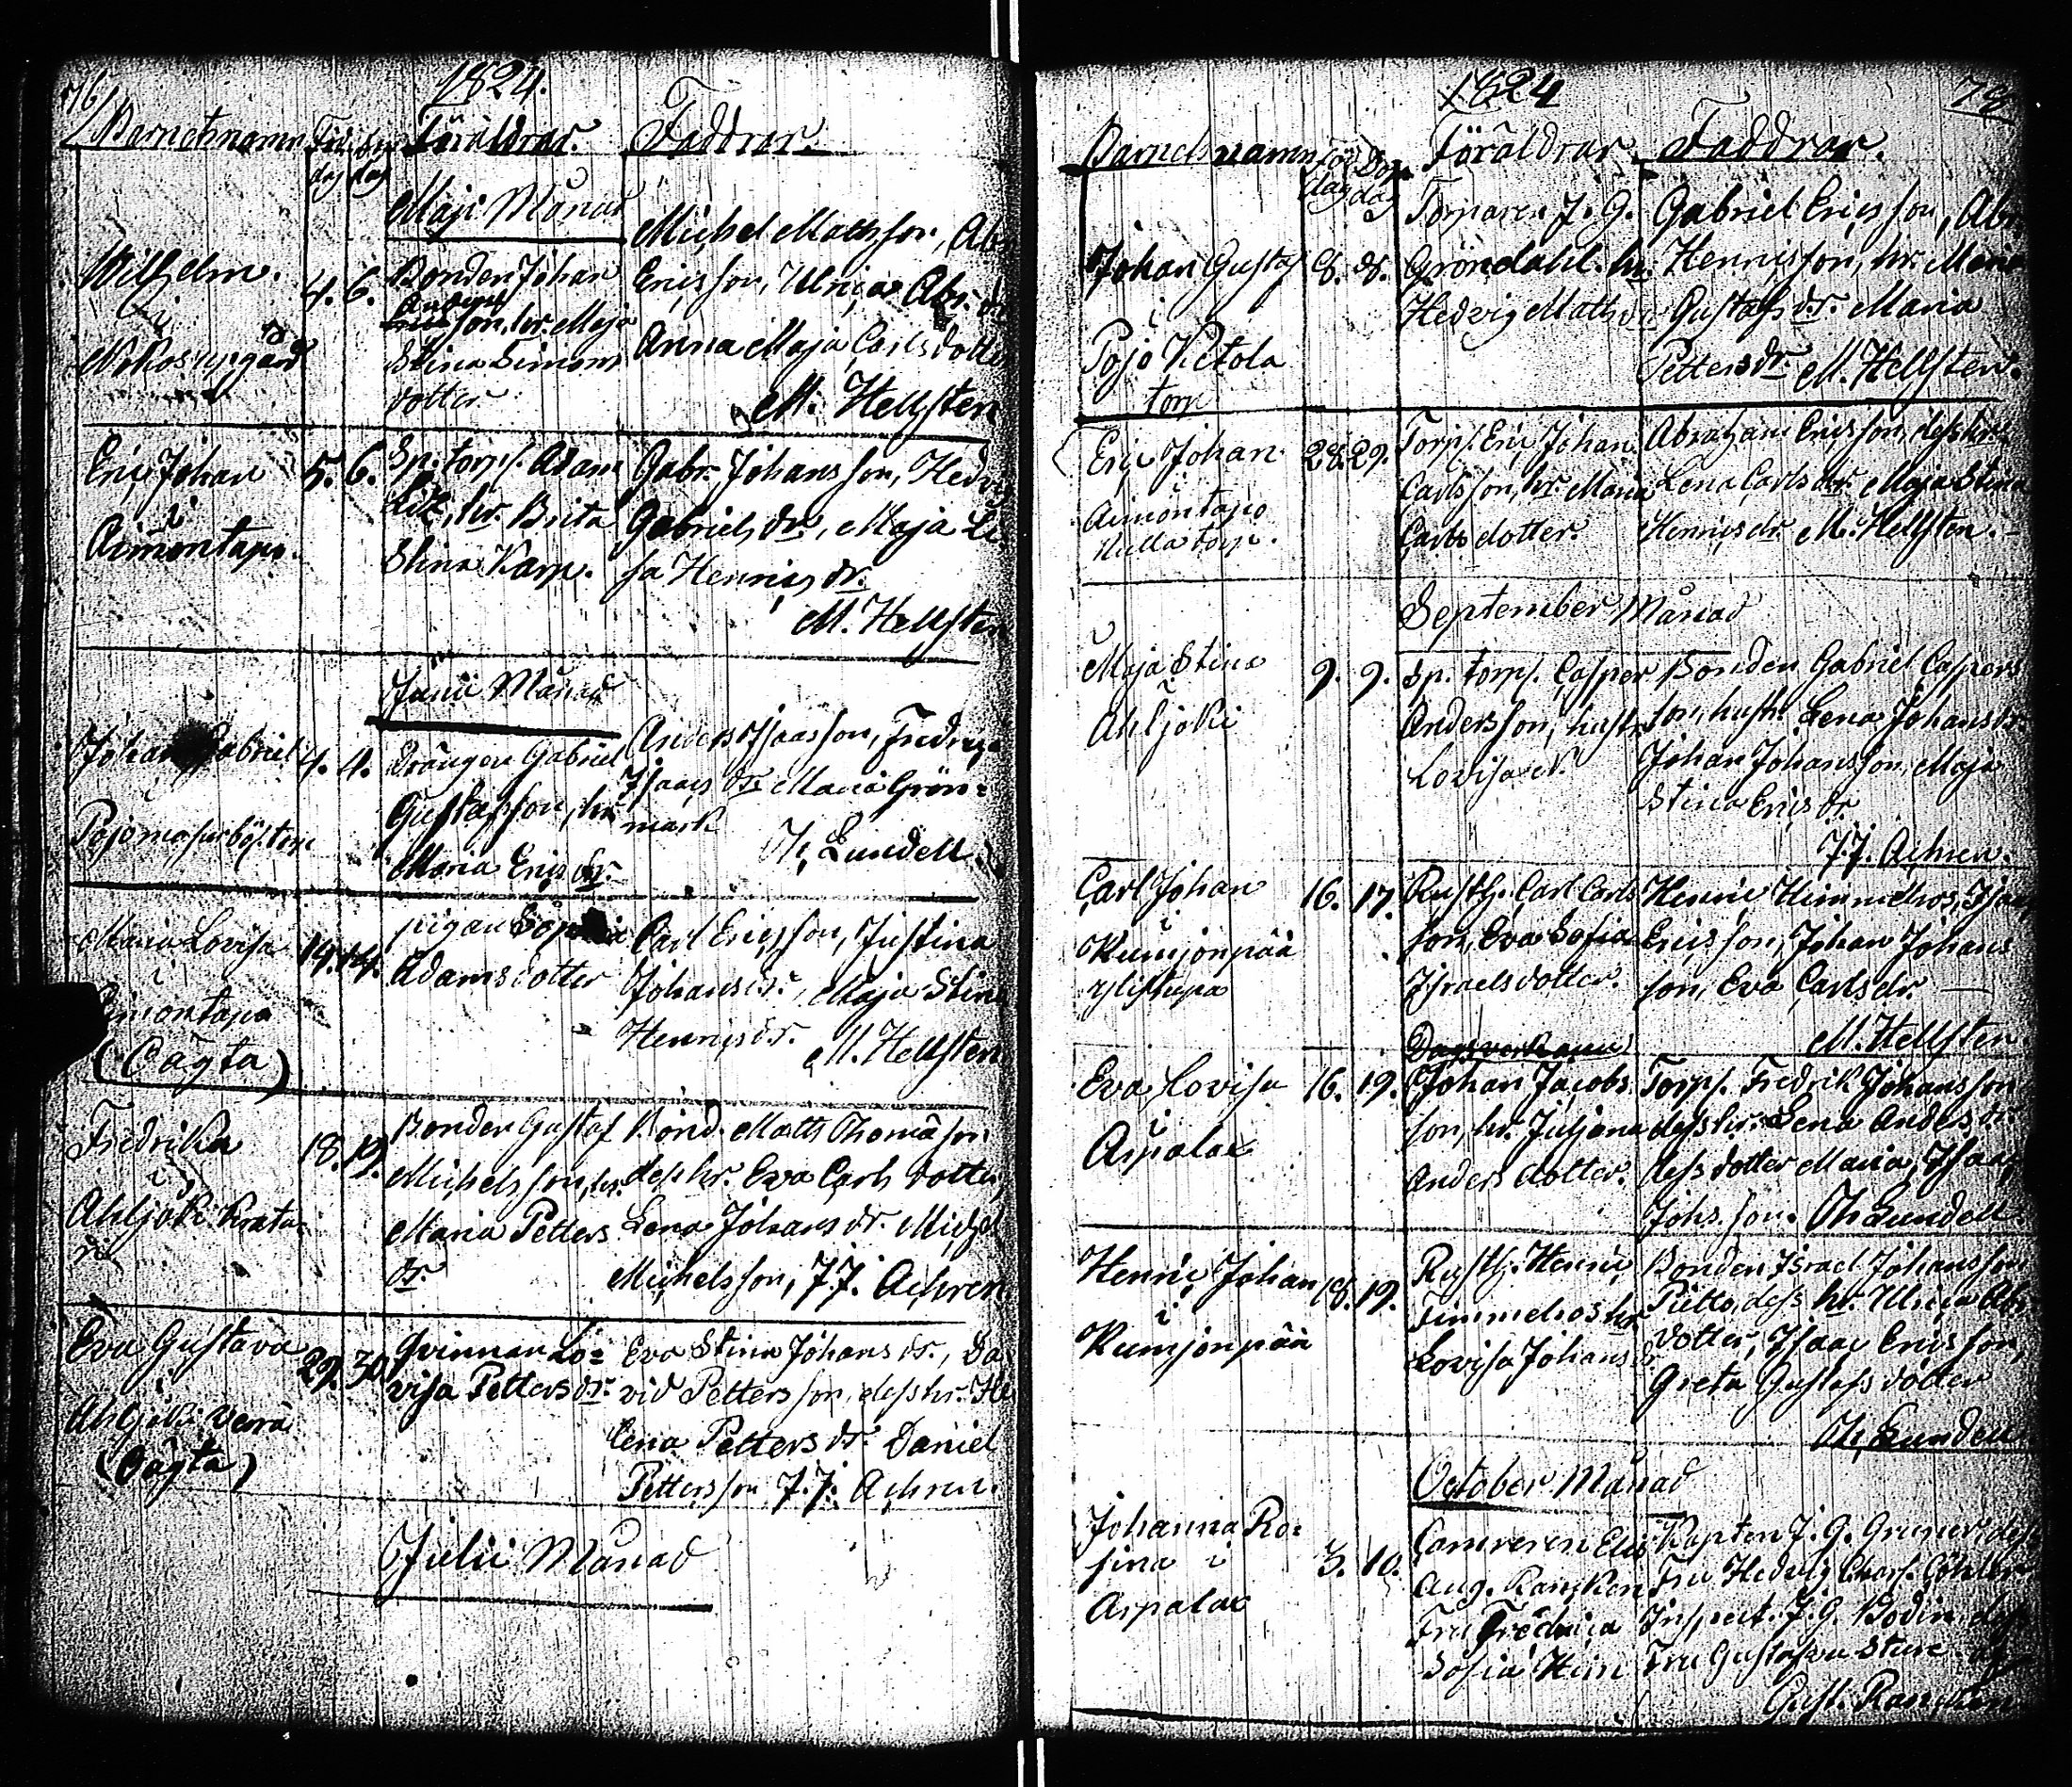 76
1824.
Barnetsnamn Föd. dag Dop dag Föräldrar. Faddrar.
Maji Månad
Wilhelm.
i
gård
4. 6.
Bonden Johan
Anders
son, hr. Maja
Stina Simons
dotter
Michel Mattsson, Abr
Ericsson, Ulrica Abr. dr
Anna Maja Carlsdotter
M. Hellsten
Eric Johan
i
Aimontapo.
5. 6.
Sp. torp. Adam
hr. Brita
Stina Karp.
Gabr. Johansson, Hedvig
Gabriels dr, Maja Li
sa Henrics dr.
M. Hellsten
Junii Månad
Johan Gabriel
i
4. 4.
Drängen Gabriel
Gustafsson, hr
Maria Erics dr.
Anders Isaacsson, Fredrica
Isaacs dr Maria Grön=
mark
Th. Lundell
Maria Lovisa
i
Aimontapo
(Oägta)
14. 14.
pigan Sophia
Adamsdotter
Carl Ericsson, Justina
Johansdr., Maja Stina
Henricsdr.
M. Hellsten
Fredrika
i
Ahljoki
18. 19.
Bonden Gustaf
Michelsson, hr.
Maria Petters
dr.
Bond. Matts Thomasson
dess hr. Eva Carls dotter,
Lena Johans dr. Michel
Michelsson, J. J. Achren
Eva Gustava
i
Ahljoki
(Oägta)
29. 30
Qvinnan Lo=
visa Pettersdr.
Eva Stina Johans dr., Da
vid Pettersson, dess hr. He
lena Petters dr. Daniel
Pettersson J. J. Achren.
Julii Månad
1824
78
Barnets namn Föd. dag Dop dag Föräldrar. Faddrar.
Johan Gustaf
i
Pojo Ketola
torp
8. 8.
Torparen J. G.
Gröndahl. hr.
Hedvig Matts dr
Gabriel Ericsson, Abr
Henricsson, hr. Maria
Gustafs dr. Maria
Petters dr. M. Hellsten.
Eric Johan
Aimontapo
torp.
28. 29.
Torp. Eric Johan
Carlsson, hr. Maria
Carlsdotter.
Abraham Ericsson, dess hr.
Lena Carls dr. Maja Stina
Henrics dr. M. Hellsten.
September Månad
Maja Stina
i
Ahljoki
9. 9.
Sp. torp. Casper
Andersson, hustr
Lovisa
Bonden Gabriel Caspers
son, hustr. Lena Johans dr.
Johan Johansson, Maja
Stina Erics dr.
J. J. Achren.
Carl Johan
i
Kumjonpää
Ylistupa
16. 17.
Rusth. Carl Carls
son, Eva Sofia
Israelsdotter.
Henric Himmelros, Isaac
Ericsson, Johan Johans
son, Eva Carlsdr.
M. Hellsten.
Eva Lovisa
i
Arpalax
16. 19.
Dagsverkaren
Johan Jacobs
son, hr. Juljana
Andersdotter.
Torp. Fredrik Johansson
dess hr. Lena Anders dr.
dess dotter Maria, Isaac
Johs. son. Th. Lundell.
Henric Johan
i
Kumjonpää
18. 19.
Rusth. Henric
hr
Lovisa Johans dr
Bonden Israel Johansson
dess hr. Ulrica Abr.
dotter, Isaac Ericsson,
Greta Gustafs dotter
Th. Lundell
October Månad
Johanna Ro=
sina i
Arpalax
3. 10.
Aug. Rancken
Fru Fredrica
Sofia
Kapten J. G. dess
Fru Hedvig
Inspect. J. G. Bodin dess
Fru Gustava
Gust. Rancken